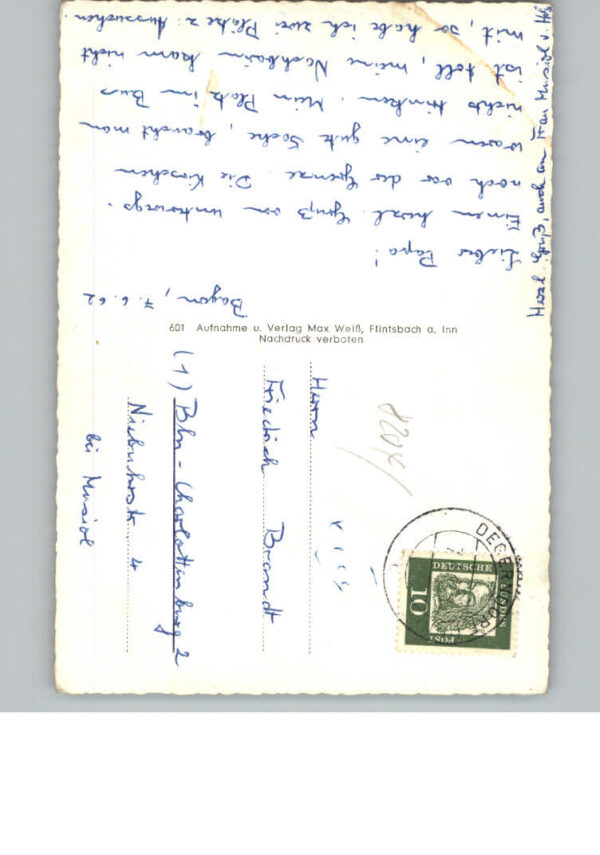 Bayern, 7.6.62
Lieber Papa!
Einen herzl. Gruß von unterwegs.
noch vor der Grenze. Die Kirschen
waren eine gute Sache, braucht man
nichts trinken. Mein Platz im Bus
ist toll, meine Nachbarin kam nicht
mit, so habe ich zwei Plätze z. Aussuchen.
Herzl. Gruß, auch an Frau Musiol v.
601 Aufnahme u. Verlag Max Weiß, Flintsbach a. Inn
Nachdruck verboten
Herrn
Friedrich Brandt
(1) Bln-Charlottenburg 2
Niebuhrstr. 4
bei Musiol
DEUTSCHE
BUNDES
POST
10